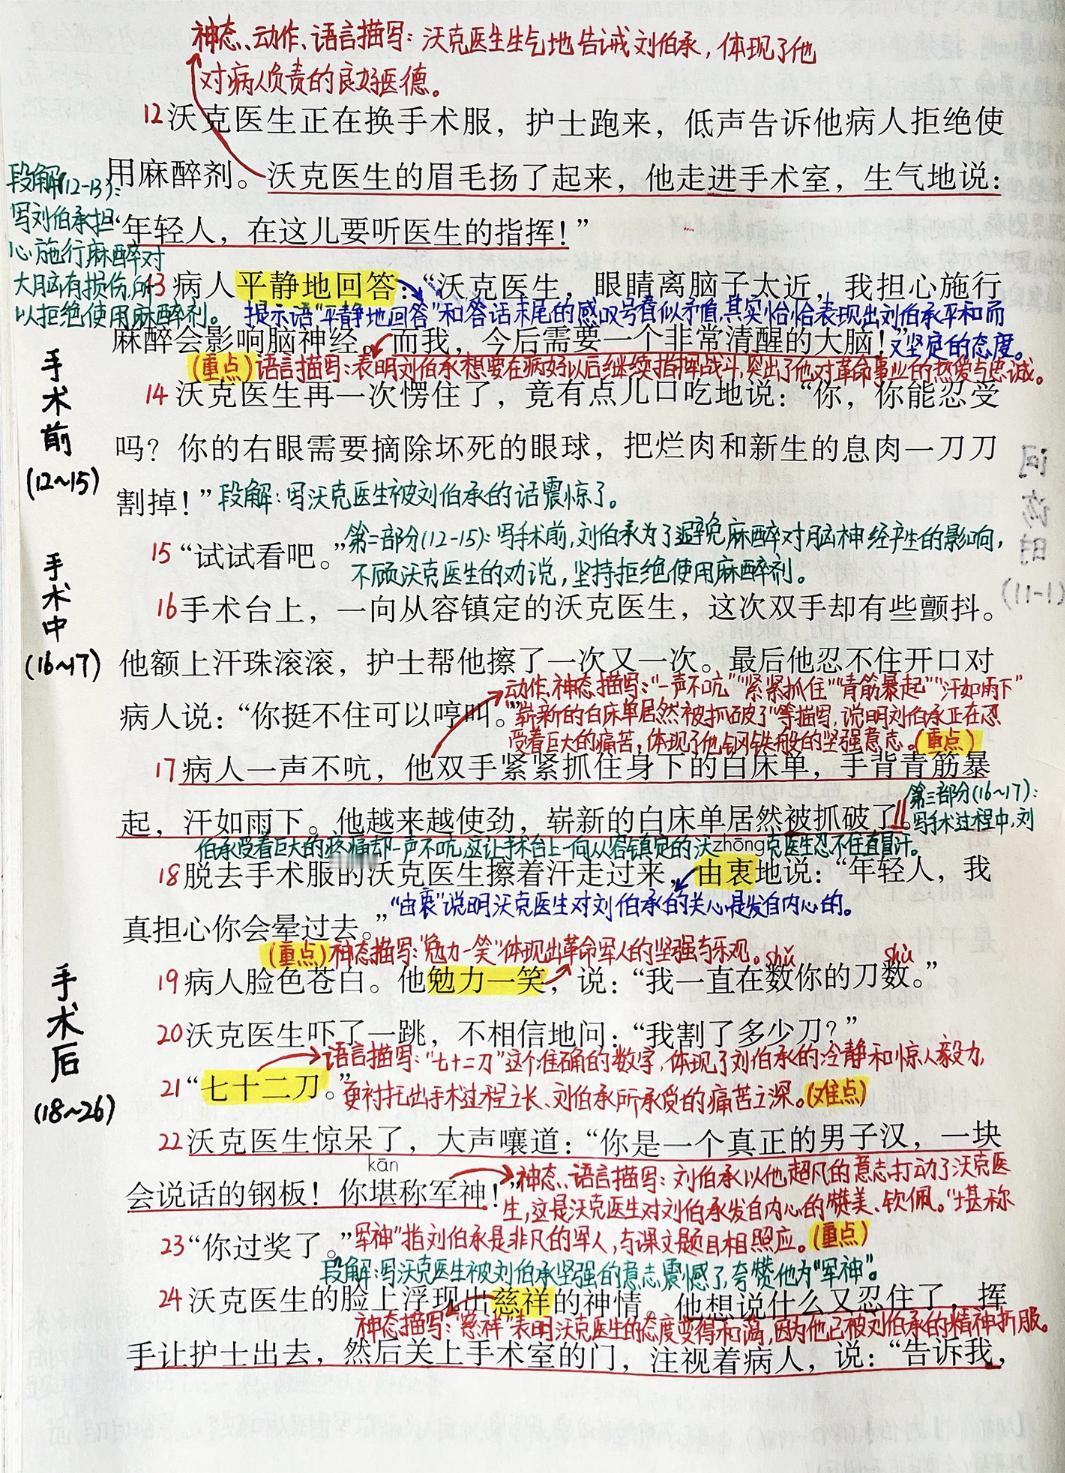 神态、动作、语言描写：沃克医生生气地告诫刘伯承，体现了他
对病人负责的良好医德。
12沃克医生正在换手术服，护士跑来，低声告诉他病人拒绝使
用麻醉剂。沃克医生的眉毛扬了起来，他走进手术室，生气地说：
“年轻人，在这儿要听医生的指挥！”
段解(12-13)：
写刘伯承担
心施行麻醉对
大脑有损伤，所
以拒绝使用麻醉剂。
13病人平静地回答：“沃克医生，眼睛离脑子太近，我担心施行
提示语“平静地回答”和答话末尾的感叹号看似矛盾，其实恰恰表现出刘伯承平和而
又坚定的态度。
麻醉会影响脑神经。而我，今后需要一个非常清醒的大脑！”
(重点)语言描写：表明刘伯承想要在病好以后继续指挥战斗，突出了他对革命事业的热爱与忠诚。
手术前
(12~15)
14沃克医生再一次愣住了，竟有点儿口吃地说：“你，你能忍受
吗？你的右眼需要摘除坏死的眼球，把烂肉和新生的息肉一刀刀
割掉！”
段解：写沃克医生被刘伯承的话震惊了。
15“试试看吧。”
第二部分(12-15)：写手术前，刘伯承为了避免麻醉对脑神经产生的影响，
不顾沃克医生的劝说，坚持拒绝使用麻醉剂。
手术中
(16~17)
16手术台上，一向从容镇定的沃克医生，这次双手却有些颤抖。
他额上汗珠滚滚，护士帮他擦了一次又一次。最后他忍不住开口对
病人说：“你挺不住可以哼叫。”
动作、神态描写：“一声不吭”“紧紧抓住”“青筋暴起”“汗如雨下”
“崭新的白床单居然被抓破了”等描写，说明刘伯承正在忍
受着巨大的痛苦，体现了他钢铁般的坚强意志。(重点)
17病人一声不吭，他双手紧紧抓住身下的白床单，手背青筋暴
起，汗如雨下。他越来越使劲，崭新的白床单居然被抓破了。
第三部分(16~17)：
写手术过程中，刘
伯承受着巨大的疼痛却一声不吭，这让手术台上一向从容镇定的沃克医生忍不住直冒汗。
zhōng
18脱去手术服的沃克医生擦着汗走过来，由衷地说：“年轻人，我
真担心你会晕过去。”
“由衷”说明沃克医生对刘伯承的关心是发自内心的。
(重点)神态描写：“勉力一笑”体现出革命军人的坚强与乐观。
shǔ shù
19病人脸色苍白。他勉力一笑，说：“我一直在数你的刀数。”
手术后
(18~26)
20沃克医生吓了一跳，不相信地问：“我割了多少刀？”
语言描写：“七十二刀”这个准确的数字，体现了刘伯承的冷静和惊人毅力，
更衬托出手术过程之长、刘伯承所承受的痛苦之深。(难点)
21“七十二刀。”
22沃克医生惊呆了，大声嚷道：“你是一个真正的男子汉，一块
kān
会说话的钢板！你堪称军神！”
神态、语言描写：刘伯承以他超凡的意志打动了沃克医
生，这是沃克医生对刘伯承发自内心的赞美、钦佩。“堪称
军神”指刘伯承是非凡的军人，与课文题目相照应。(重点)
23“你过奖了。”
段解：写沃克医生被刘伯承坚强的意志震憾了，夸赞他为“军神”。
24沃克医生的脸上浮现出慈祥的神情。他想说什么又忍住了，挥
神态描写：“慈祥”表明沃克医生的态度变得和蔼，因为他已被刘伯承的精神折服。
手让护士出去，然后关上手术室的门，注视着病人，说：“告诉我，